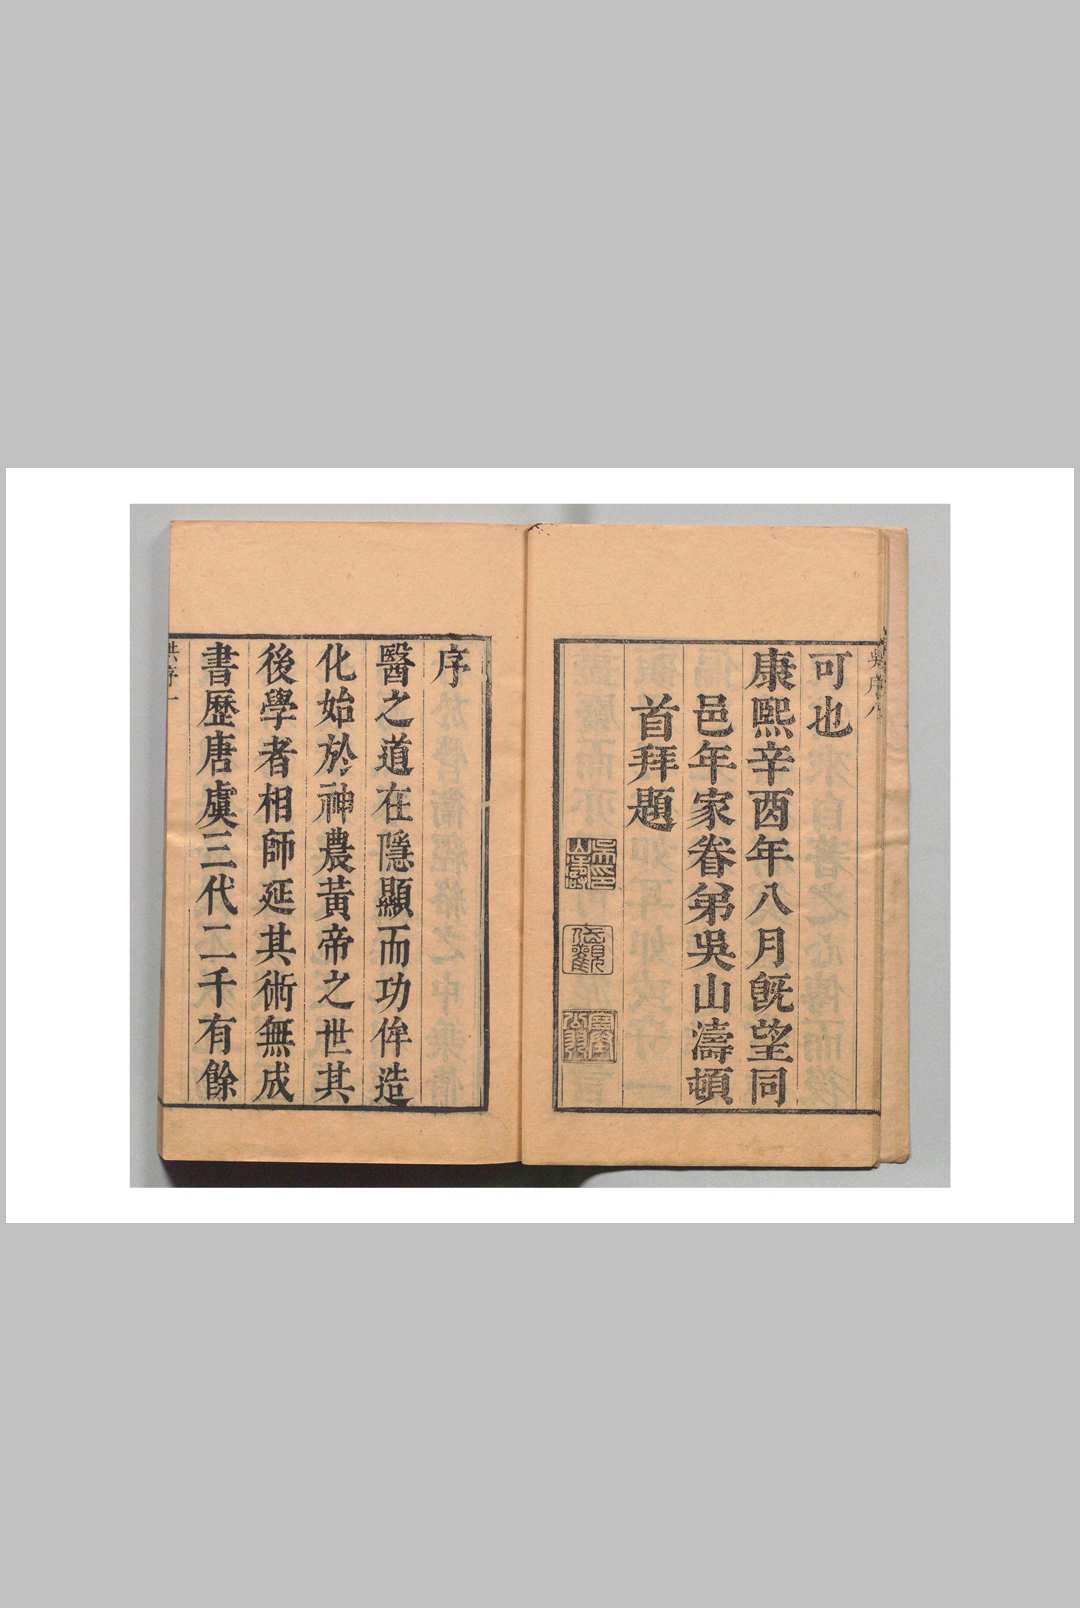 吳序八
可也
康熙辛酉年八月既望同
邑年家眷弟吳山濤頓
首拜題
序
醫之道在隱顯而功侔造
化始於神農黃帝之世其
後學者相師延其術無成
書歷唐虞三代二千有餘
洪序一